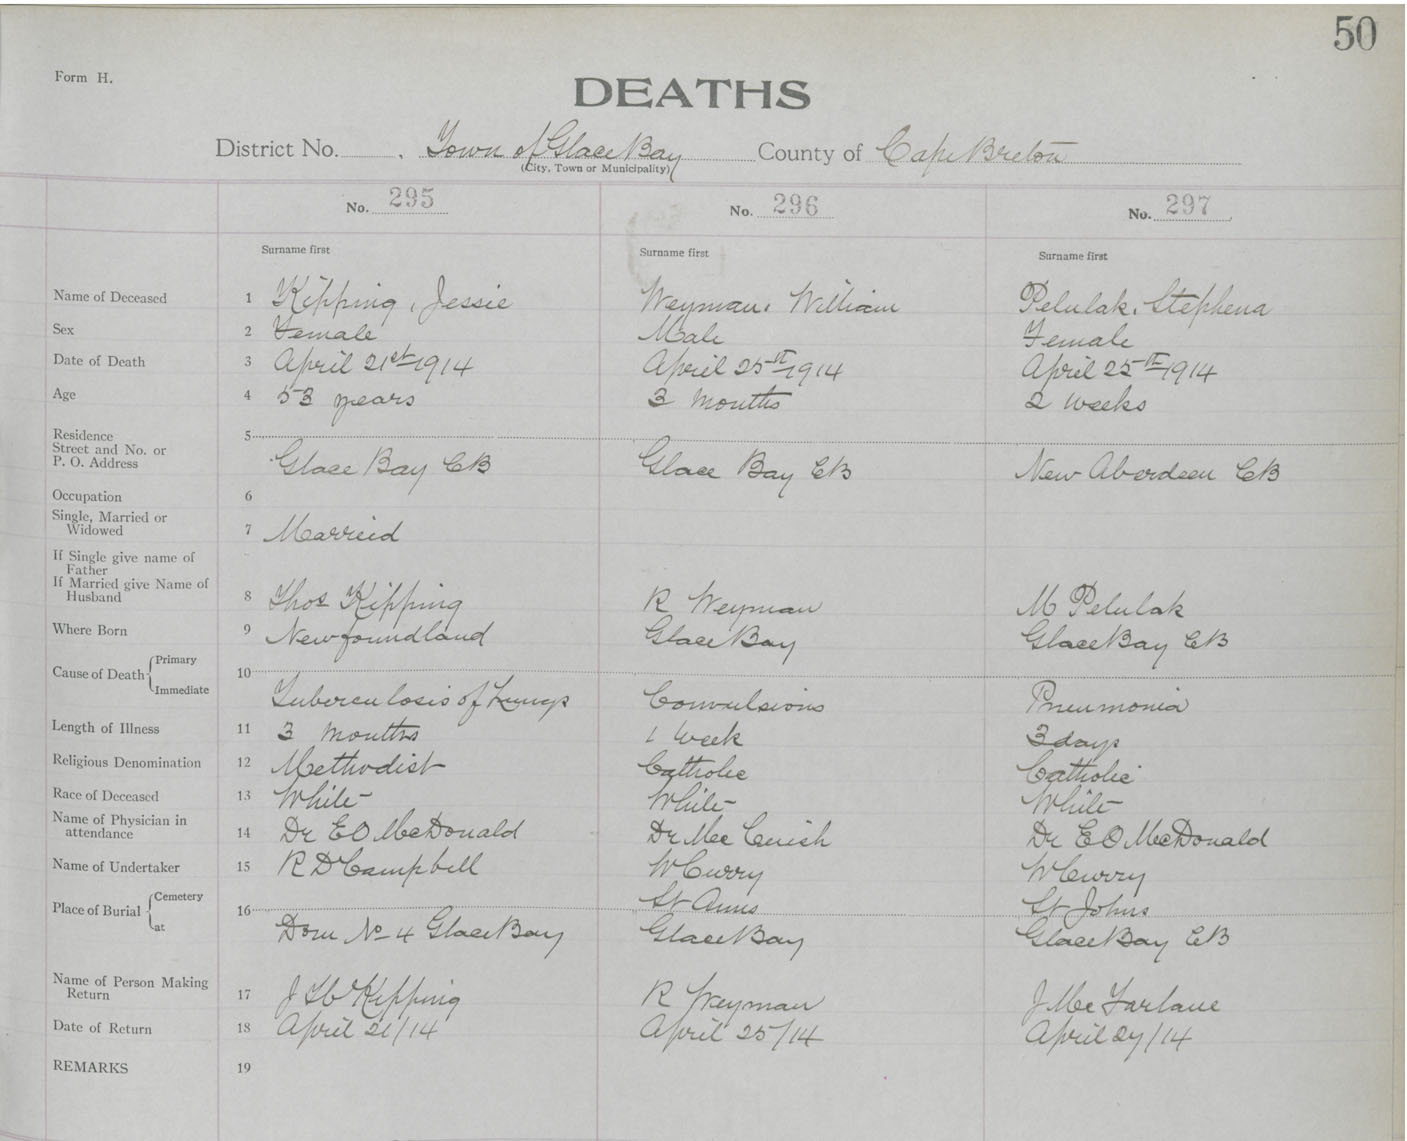 50
Form H.
DEATHS
District No. , Town of Glace Bay County of Cape Breton
(City, Town or Municipality)
No. 295 No. 296 No. 297
Surname first Surname first Surname first
Name of Deceased 1 Kipping, Jessie Weyman, William Pelulak, Stephena
Sex 2 Female Male Female
Date of Death 3 April 21st 1914 April 25th 1914 April 25th 1914
Age 4 53 years 3 Months 2 weeks
Residence 5
Street and No. or
P. O. Address Glace Bay CB Glace Bay CB New Aberdeen CB
Occupation 6
Single, Married or
Widowed 7 Marreid
If Single give name of
Father
If Married give Name of
Husband 8 Thos Kipping R Weyman M Pelulak
Where Born 9 Newfoundland Glace Bay Glace Bay CB
Cause of Death Primary 10
Immediate Tuberculosis of Lungs Convulsions Pneumonia
Length of Illness 11 3 months 1 week 3 days
Religious Denomination 12 Methodist Catholic Catholic
Race of Deceased 13 White White White
Name of Physician in
attendance 14 Dr E O McDonald Dr Mac Cuish Dr E O McDonald
Name of Undertaker 15 R D Campbell W Curry W Curry
Place of Burial Cemetery 16 St Anns St Johns
at Dom No 4 Glace Bay Glace Bay Glace Bay CB
Name of Person Making
Return 17 Kipping R Weyman J Mc Farlane
Date of Return 18 April 21/14 April 25/14 April 27/14
REMARKS 19